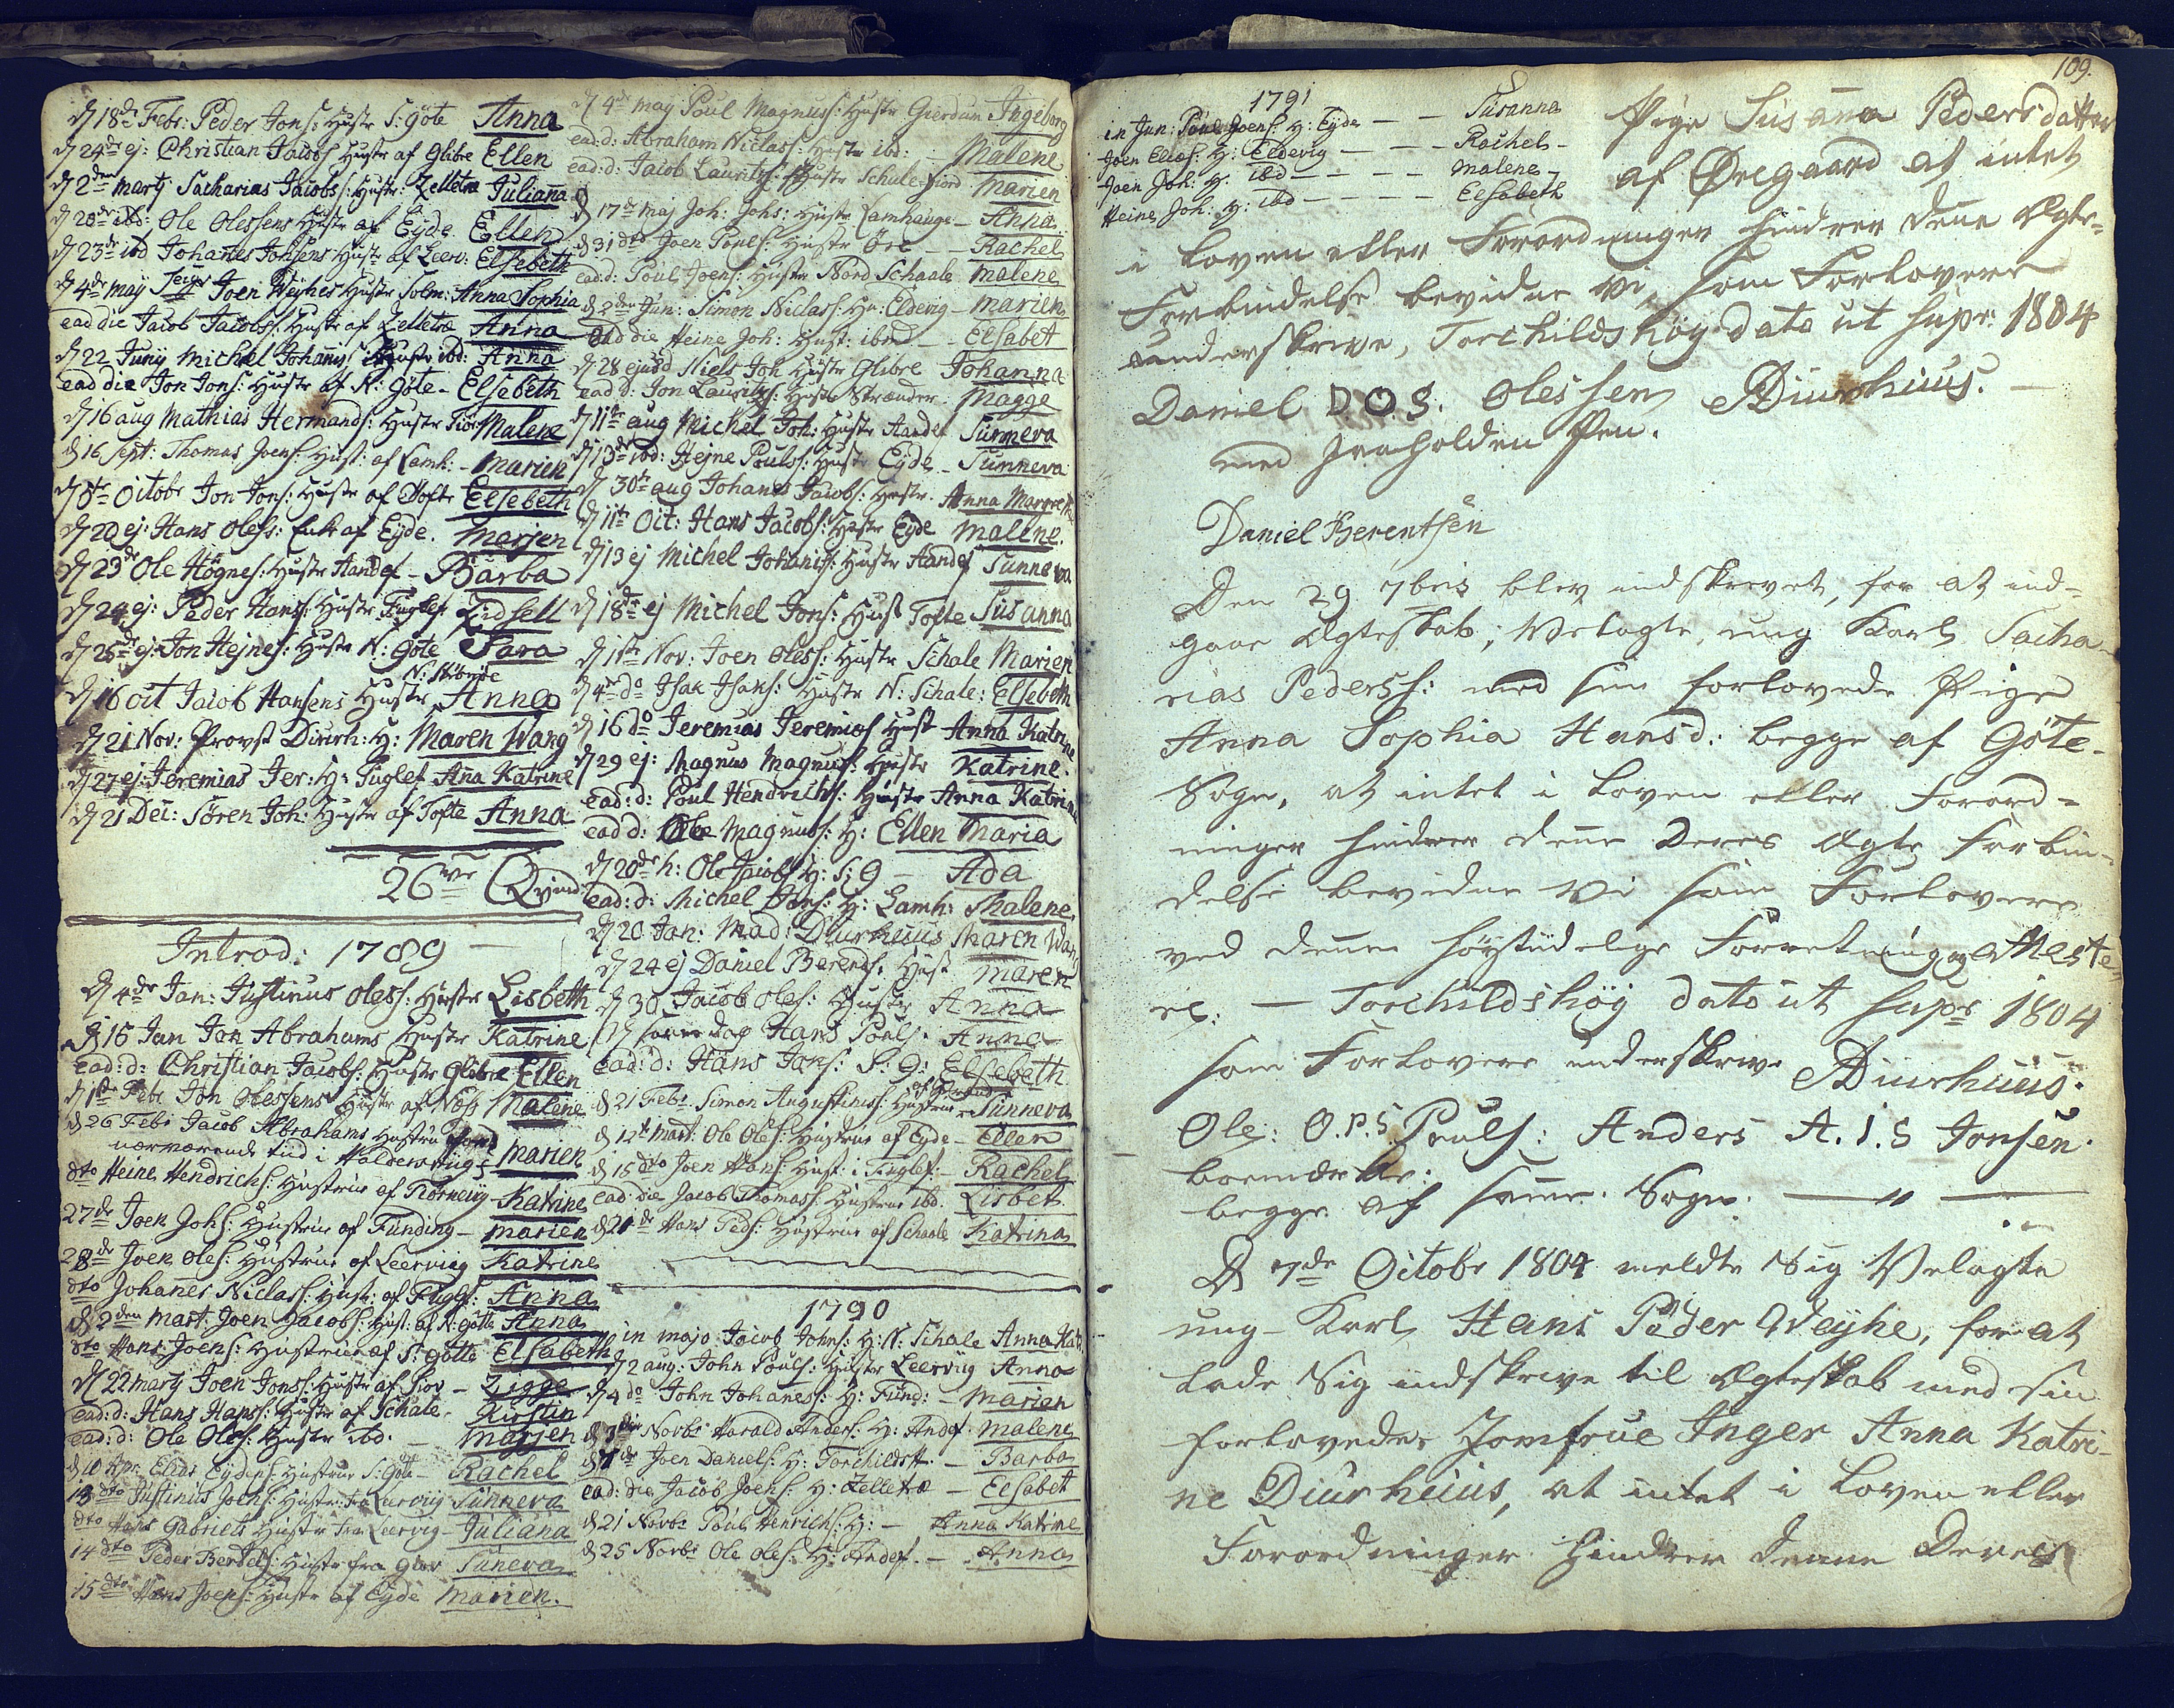 d 18de Febr: Peder Jons: Hustr S: Göte Anna
d 24de ej: Christian Jacobs Hustr af Glibre Ellen
d 2den Martj Sacharias Jacobs: Hustr: Zelletræ Juliana
d 20de ibd: Ole Olessens Hustr af Eyde Ellen
d 23de ibd Johanes Johsens Hustr af Leerv: Elsebeth
d 4de May Joen Weyhes Hustr Solm: Anna Sophia
ead die Jacob Jacobss: Hustr af Zelletræ Anna
d 22 Junij Michel Johannis Hustr ibd: Anna
ead die Jon Jons: Hustr af N: Göte - Elsebeth
d 16 aug Mathias Hermands: Hustr Malene
d 16 Sept: Thomas Joens: Hust: af Lamh: - Marien
d 8de Octobr Jon Jons: Hustr af Tofte Elsebeth
d 20 ej: Hans Oless: Enk af Eyde. Marjen
d 23de Ole Högnes: Hustr Andef - Barba
d 24 ej: Peder Hans: Hustr Fuglef Zidsell
d 26de ej: Jon Hejnes: Hustr N: Göte Sara
d 16 oct Jacob Hansens Hustr Anna
d 21 Nov: Provst Diurh: H: Maren Wang
d 27 ej: Jeremias Jer: H: Fuglef Ana Katrine
d 21 Dec: Sören Joh: Hustr af Tofte Anna
26ve Qvind:
Introd: 1789
d 4de Jan: Justinus Oless: Hustr Lisbeth
d 16 Jan Jon Abrahams Hustr Katrine
ead: d: Christian Jacobs: Hustr Glibre Ellen
d 1ste Febr Jon Olessens Hustr af Næss Malene
d 26 Febr Jacob Abrahams Hustrue
nærværende tid i Haldersviig - Marien
dto Heine Hendrichs: Hustrue af Nörnevig - Katrine
27de Joen Johs: Hustrue af Funding - Marien
28de Joen Oles: Hustrue af Leervieg Katrine
dto Johanes Niclass: Hustr: af Fuglf: Anna
d 2den Mart: Joen Jacobs: Hust: af N: götte Anna
dto Hans Joens: Hustrue af S: götte Elsabeth
d 22 Martj Joen Jonss: Hustr af Giov - Zigge
ead: d: Hans Hanss: Hustr af Schale - Kirstin
ead: d: Ole Oles: Hustr ibd. - Marjen
d 10 Apr: Elias Eydens: Hustrue S: Göte - Rachel
13 dto Justinus Joens: Hustr: fra Leerviig Sunneva
dto Hans Gabriels Hustr fra Leervig - Juliana
14 dto Peder Berdels: Hustr fra Giov Suneva
15 dto Hans Joens: Hustr af Eyde Marien.
d 4de May Poul Magnuss: Hustr Gierdum Ingeborg
ead: d: Abraham Niclass: Hustr ibd: - Malene
ead: d: Jacob Lauritzs: Hustr Schulefiord Marien
d 17de Maj Joh: Johs: Hustr Lamhauge - Anna
d 31 dto Joen Pouls: Hustr Öre - Rachel
ead: d: Poul Joens: Hustr Nord Schaale Malene
d 2den Jun: Simon Niclass: Hu: Eldevig - Marien
Ead die Heine Joh: Hust: ibmd - Elsabet
d 28 ejusd Niels Joh Hustr Glibre Johanna
ead d: Jon Lauritzs: Hustr Strænder. Magge
d 11te aug Michel Joh: Hustr Andef Sunneva
d 13de ibd: Hejne Poulss: Hustr Eyde - Sunneva
d 30te aug Johanes Jacobs: Hustr. Anna Margreth
d 11te Oct: Hans Jacobs: Hustr Eyde Malene.
d 13 ej Michel Johanis: Hustr Andef Sunneva
d 18de ej Michel Jons: Hust Tofte Susanna
d 1ste Nov: Joen Oless: Hustr Schale Marien
d 4de do Isak Isaks: Hustr N: Schale: Elsebeth
d 16 do Jeremias Jeremias Hust Anna Katrine
d 29 ej: Magnus Magnus: Hustr Katrine.
ead: d: Poul Hendrichs: Hustr Anna Katrine
ead d: Ole Magnuss: H: Ellen Maria
d 20de h: Ole Jacobs H: S: G - Ada
ead: d: Michel Hans: H: Lamh: Malene
d 20 Jan: Mad: Diurhuus Maren Wang
d 24 ej Daniel Berends: Hust Maren
d 30 Jacob Oles: Hustr Anna
d samme dag Hans Pouls: Anna
ead: d: Hans Jons: S: G: Elsebeth
d 21 Febr Simon Augustinus: Hustrue Sunneva
d 12te Mart: Ole Oles: Hustrue af Eyde - Ellen
d 15 dto Joen Hans: Hust: i Fuglef: - Rachel
ead: die Jacob Thomass: Hustrue ibd. Lisbet
d 21de Hans Peds: Hustrue af Schaale Katrina
1790
in majo Jacob Johns: H: N: Schale Anna Kat:
d 2 aug: John Pouls: Hustr Leerviig Anna
d 4 do John Johaness: H: Fund: - Marien
d 3die Novbr Harald Anders: H: Andef. Malene
d 7de Joen Daniels: H: Torchildsh: - Barba
ead: die Jacob Joens: H: Zelletræ - Elsabet
d 21 Novbr Poul Henrichs: H: - Anna Katrine
d 25 Novbr Ole Oles: H: Andef. - Anna
109.
1791
in Jun: Poul Joens: H: Eyde - - Susanna
Joen Elias: H: Eldevig - - - Rachel -
Joen Joh: H: ibd - - - - Malene -
Heine Joh: H: ibd - - - - Elsabeth
Pige Susanna Pedersdatter
af Øregaard at intet
i Loven eller Forordninger hindrer denne Ægte-
Forbindelse bevidne Vi, som Forlovere
underskrive, Torchildshöy dato ut supr: 1804
Daniel D.O.S. Olessen ADiurhuus. -
med Paaholden Pen.
Daniel Berentsen
Den 29 7bris blev indskrevet, for at ind-
gaae Ægteskab, Velagte, ung Karl Sacha-
rias Pederss: med sin forlovede Pige
Anna Sophia Hansd: begge af Göte-
Sogn, at intet i Loven eller Forord-
ninger hindrer denne Deres Ægte forbin-
delse bevidne Vi som Forlovere
ved denne höytiidelige Forretning atteste-
re: - Torchildshöy dato ut supr 1804
som Forlovere underskrive ADiurhuus:
Ole: O.P.S Pouls: Anders A.I.S Jonsen.
boemærke:
begge af samme Sogn. - " -
D 7de Octobr 1804 meldte Sig Velagte
ung - Karl Hans Peder Weyhe, for at
lade Sig indskrive til Ægteskab med sin
forlovede, Jomfrue Inger Anna Katri-
ne Diurhuus, at intet i Loven eller
Forordninger Hindrer denne Deres